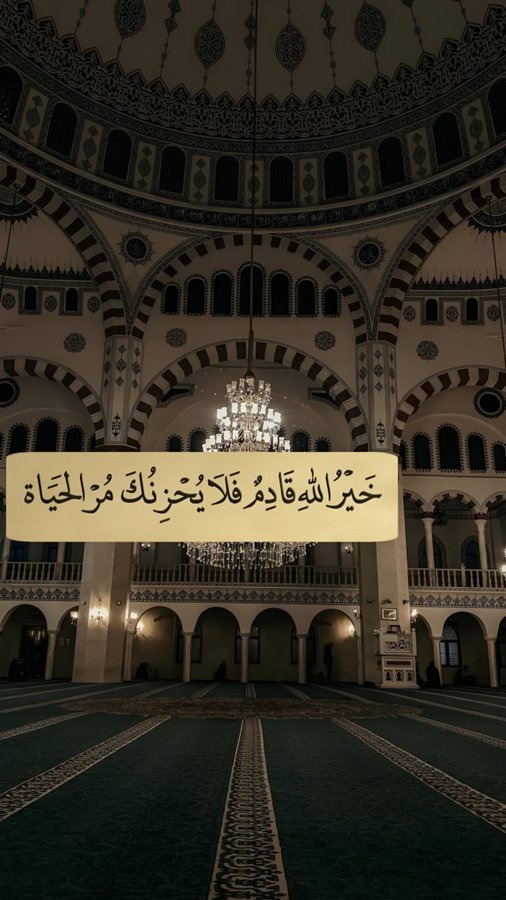 خَيْرُ اللهِ قَادِمٌ فَلَا يُحْزِنُكَ مُرْ الحَيَاة